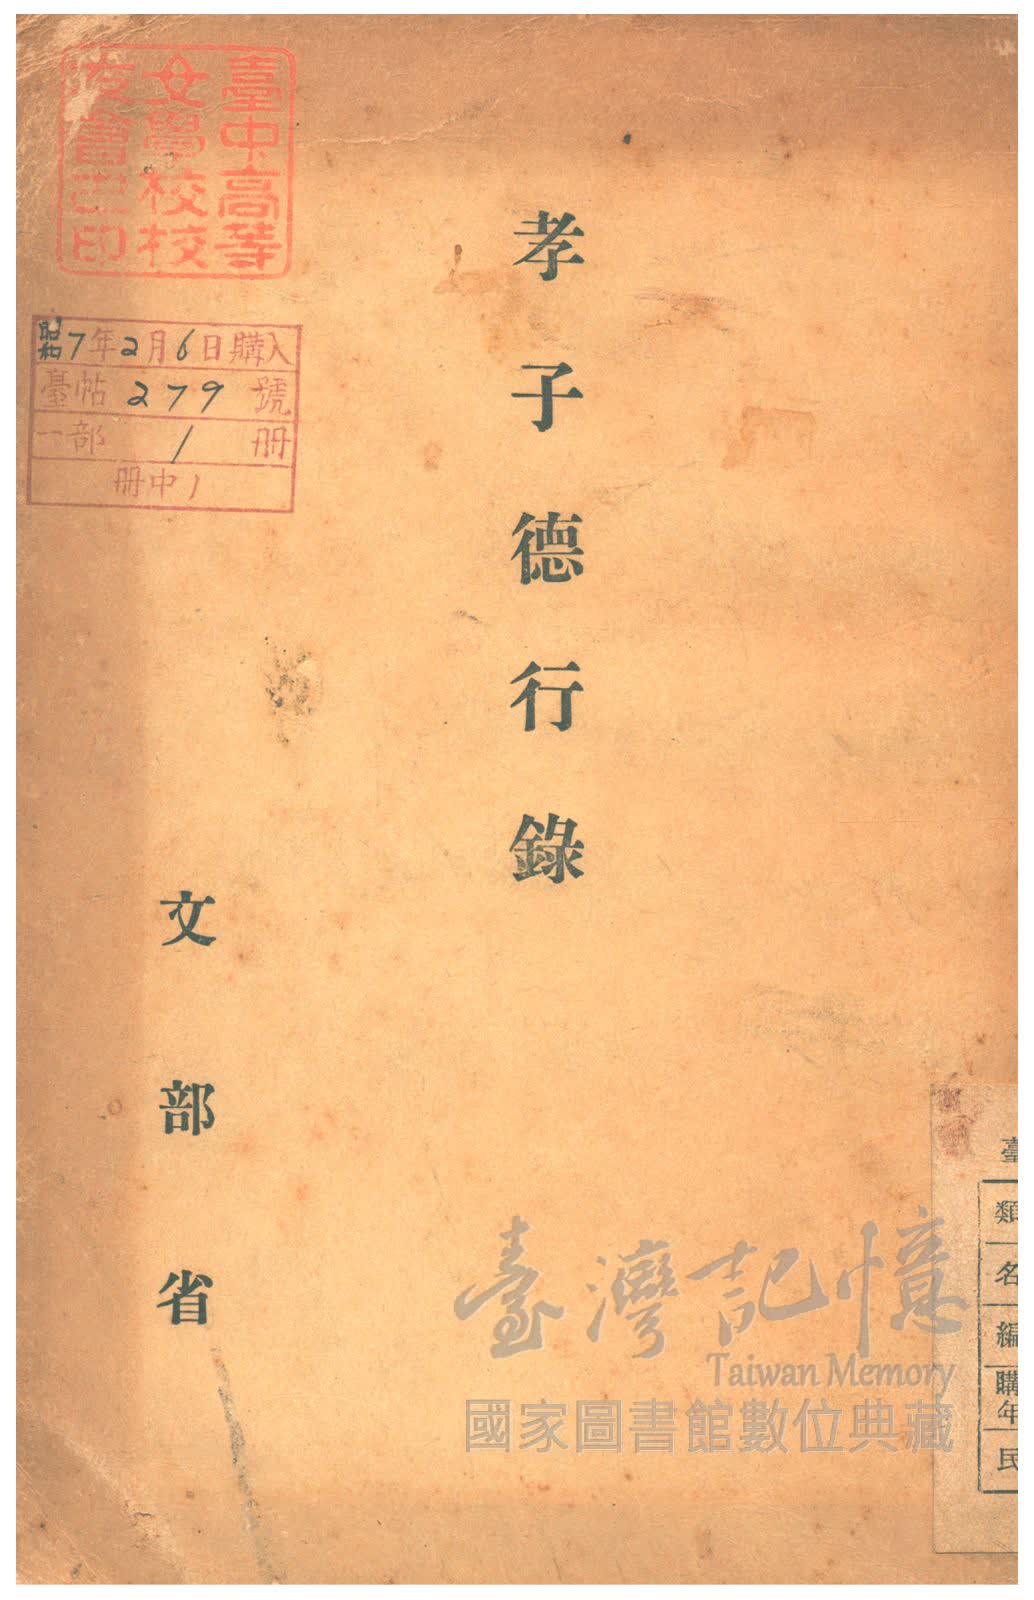 臺中高等
女學校校
友會之印
昭和7年2月6日購入
臺帖 279 號
一部 1 冊
冊中1
孝子德行錄
文部省
臺
類
名
編
購年
民
臺灣記憶
Taiwan Memory
國家圖書館數位典藏